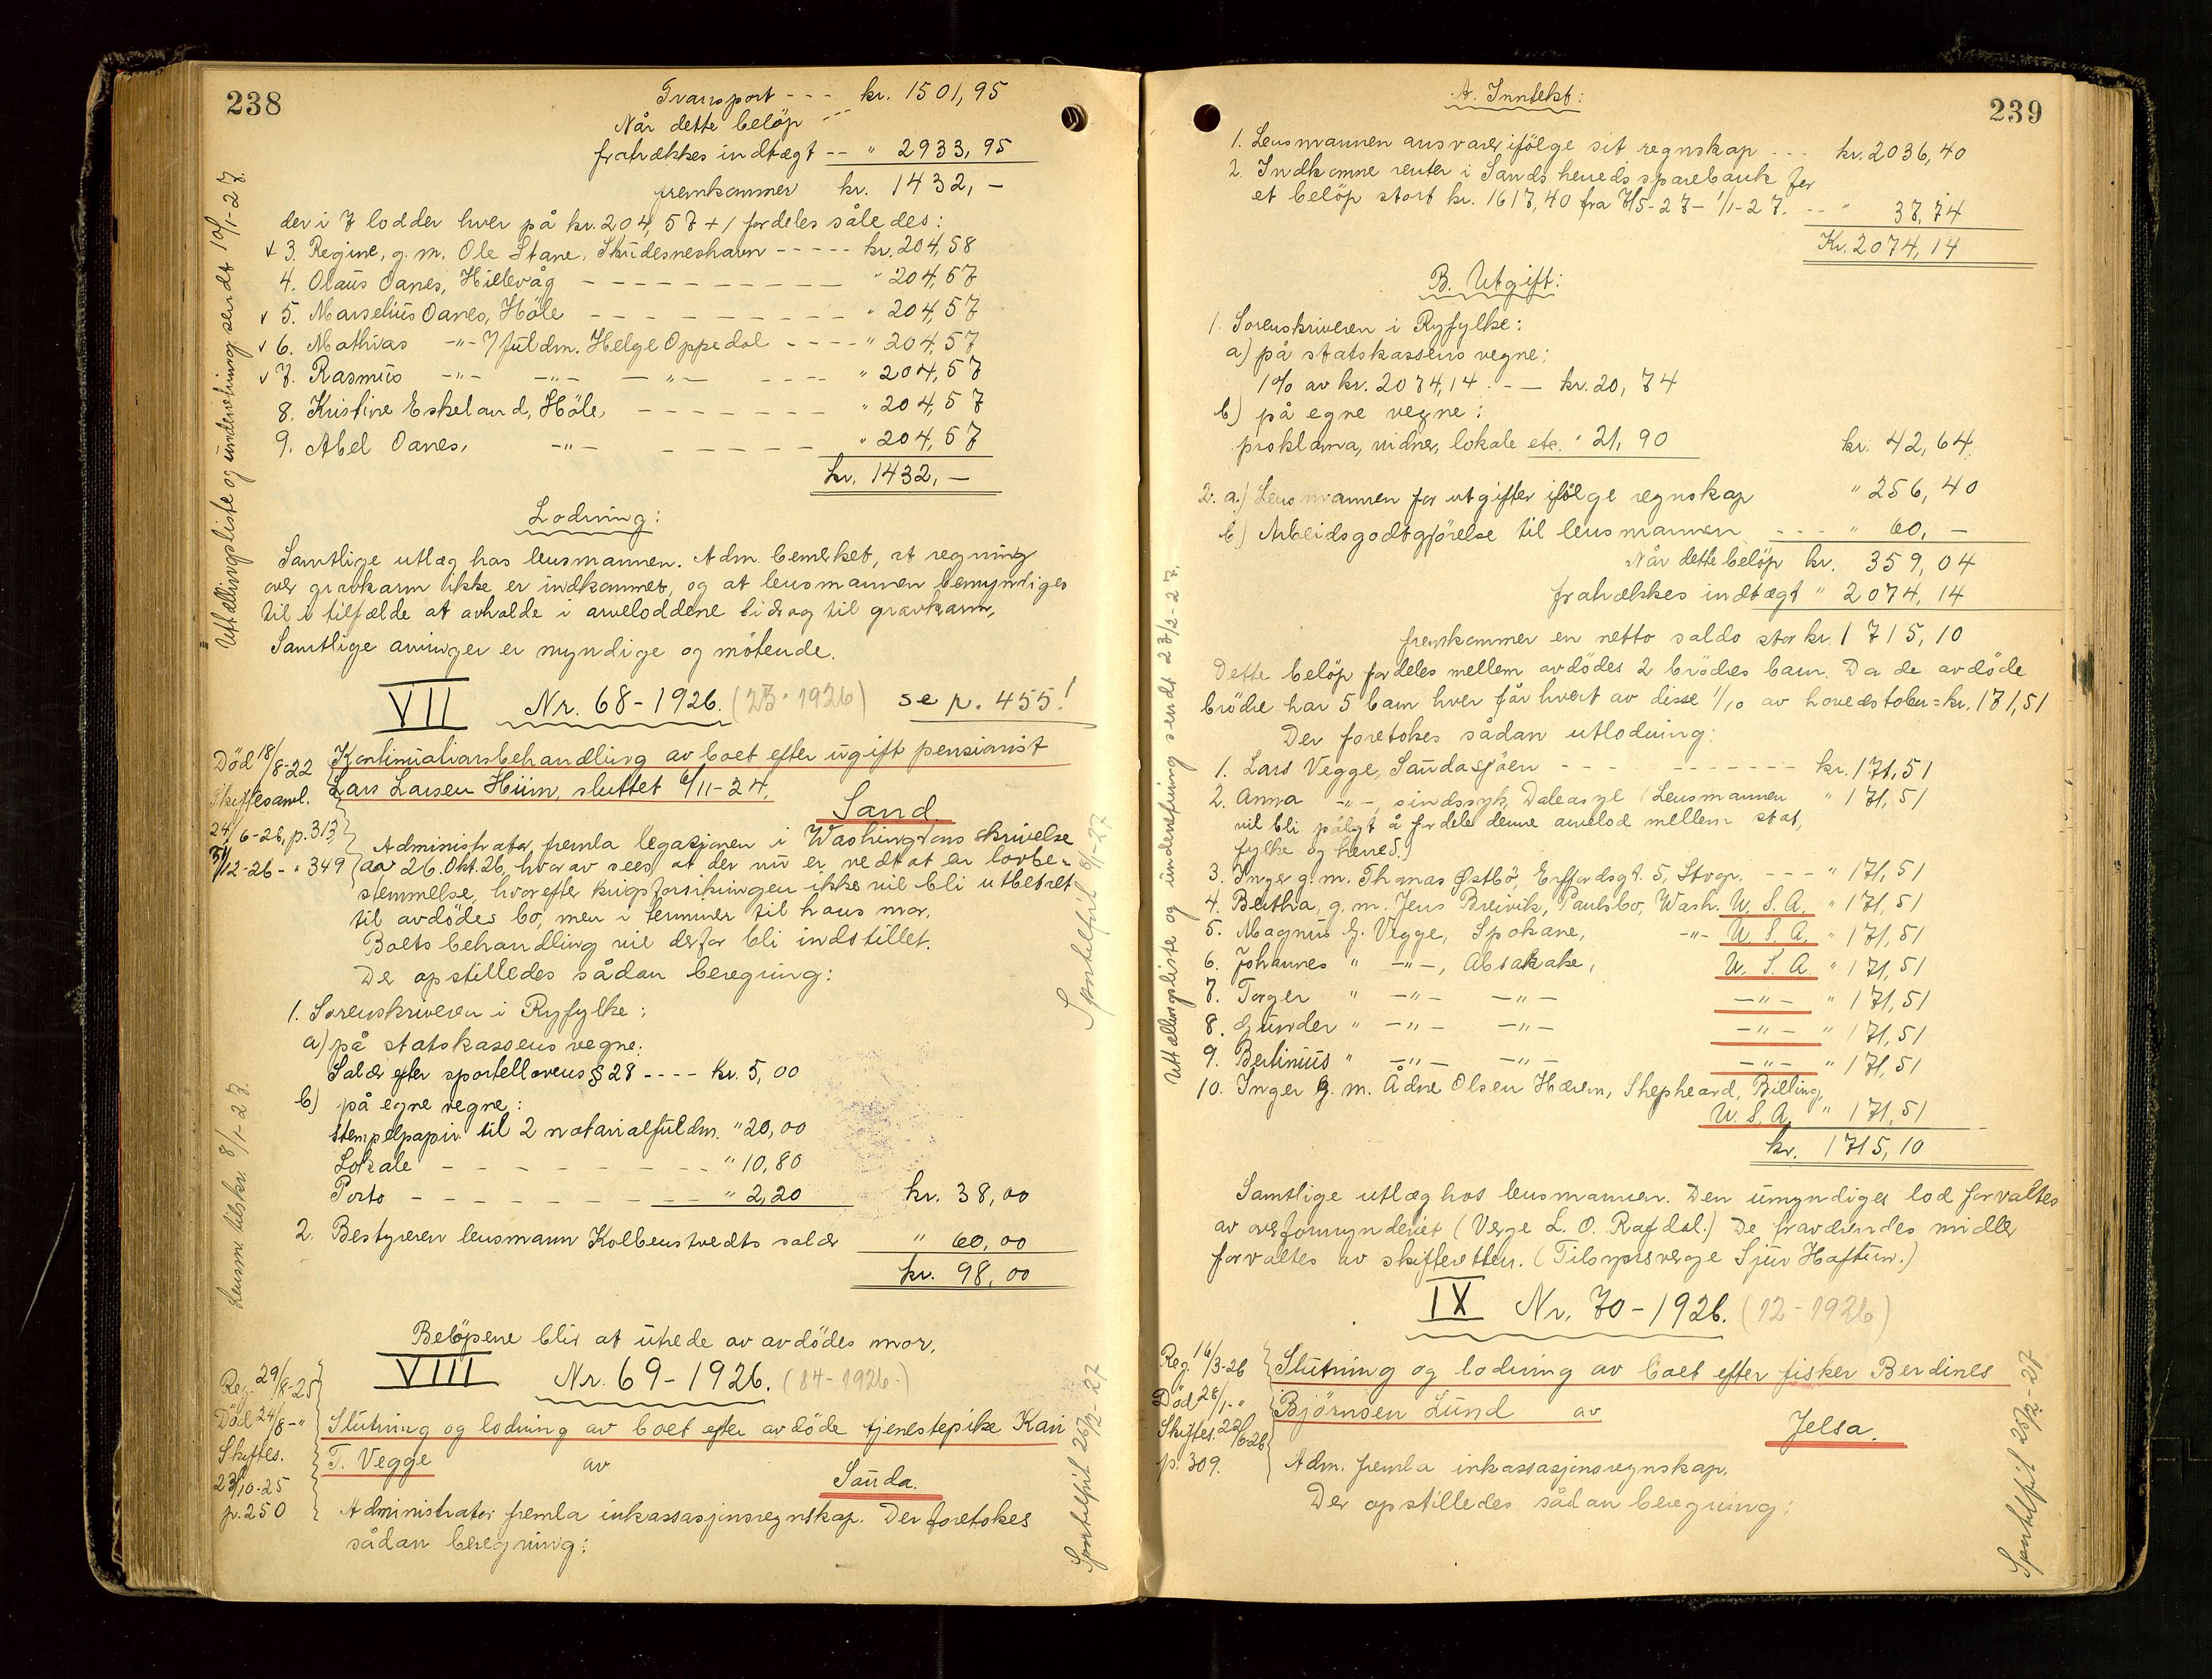 238
Transport - - - kr. 1501,95
Når dette beløp - - -
fratrækkes indtægt - - " 2933,95
fremkommer kr. 1432,-
der i 7 lodder hver på kr. 204,57 + 1 fordeles således:
v 3. Regine, g. m. Ole Stane, Skudesneshavn - - - - - kr. 204,58
4. Olaus Oanes, Hillevåg - - - - - - - - - " 204,57
v 5. Marselius Oanes, Høle - - - - - - - - - " 204,57
v 6. Mathias -"- 7 fuldm. Helge Oppedal - - - - " 204,57
v 7. Rasmus -"- -"- - " - - - - - " 204,57
8. Kristine Eskeland, Høle, - - - - - - - " 204,57
9. Abel Oanes, -"- - - - - - " 204,57
kr. 1432,-
Lodning:
Samtlige utlæg hos lensmannen. Adm. bemerket, at regning
over gravkarm ikke er indkommet, og at lensmannen bemyndiges
til i tilfælde at avholde i arveloddene bidrag til gravkarm,
Samtlige arvinger er myndige og møtende.
Utstillingsliste og underretning sendt 10/1-27.
VII Nr. 68-1926. (23-1926) se p. 455!
Død 18/8-22
Skiftesaml.
24/6-26, p. 313
31/12-26 - " 349
Kontinuationsbehandling av boet efter ugift pensionist
Lars Larsen Hiim, sluttet 6/11-24,
Sand.
Administrator fremla legasjonen i Washingtons skrivelse
av 26. Okt. 26, hvorav sees, at der nu er vedtat en lovbe-
stemmelse, hvorefter krigsforsikringen ikke vil bli utbetalt
til avdødes bo, men i terminer til hans mor.
Boets behandling vil derfor bli indstillet.
Der opstilledes sådan beregning:
1. Sorenskriveren i Ryfylke:
a) på statskassens vegne:
Salær efter sportellovens § 28 - - - - kr. 5,00
b) på egne vegne:
Stempelpapir til 2 notarialfuldm. " 20,00
Lokale - - - - - - - - - " 10,80
Porto - - - - - - - - - - " 2,20 kr. 38,00
2. Bestyreren lensmann Kolbenstvedts salær " 60,00
kr. 98,00
Lensm. tilskr. 8/1-27.
Sportelført 8/1-27
Beløpene blir at utrede av avdødes mor.
VIII Nr. 69-1926. (84-1926.)
Reg. 29/8-25
Død 24/8-"
Skiftes.
23/10-25
p. 250
Slutning og lodning av boet efter avdøde tjenestepike Kari
T. Vegge av
Sauda.
Administrator fremla inkassasjonsregnskap. Der foretokes
sådan beregning:
Sportelført 23/2-27
239
A. Inntekt:
1. Lensmannen ansvarer ifølge sit regnskap - - - kr. 2036,40
2. Indkomne renter i Sands herreds sparebank for
et beløp stort kr. 1617,40 fra 7/5-27 - 1/1-27. - - " 37,74
Kr. 2074,14
B. Utgift:
1. Sorenskriveren i Ryfylke:
a) på statskassens vegne:
1% av kr. 2074,14. - - kr. 20,74
b) på egne vegne:
proklama, vidner, lokale etc. " 21,90 kr. 42,64
2. a.) Lensmannen for utgifter ifølge regnskap " 256,40
b) Arbeidsgodtgjørelse til lensmannen - - - " 60,-
Når dette beløp kr. 359,04
fratrækkes indtægt " 2074,14
fremkommer en netto saldo stor kr. 1715,10
Dette beløp fordeles mellem avdødes 2 brødres barn. Da de avdøde
brødre har 5 barn hver får hvert av disse 1/10 av hovedstolen = kr. 171,51
Der foretokes sådan utlodning:
1. Lars Vegge, Saudasjøen - - - - - - - - - - kr. 171,51
2. Anna -"-, sindssyk, Daleasyl (Lensmannen " 171,51
vil bli pålagt å fordele denne arvelod mellem stat,
fylke og herred.)
3. Inger g. m. Thomas Østbø, Erffordsgt. 5, Stvgr. - - - " 171,51
4. Bertha, g. m. Jens Breivik, Paulsbo, Wash. U. S. A. " 171,51
5. Magnus G. Vegge, Spokane, -"- U. S. A. " 171,51
6. Johannes " -"-, Absakake, U. S. A. " 171,51
7. Torger " -"- -"- -"- " 171,51
8. Gunder " -"- -"- -"- " 171,51
9. Bertinius " -"- -"- -"- " 171,51
10. Inger g. m. Ådne Olsen Hærem, Shepheard, Billing,
U. S. A. " 171,51
kr. 1715,10
Samtlige utlæg hos lensmannen. Den umyndiges lod forvaltes
av overformynderiet (Verge L. O. Rafdal.) De fraværendes midler
forvaltes av skifteretten. (Tilsynsverge Sjur Haftun.)
Utstillingsliste og underretning sendt 23/2-27.
IX Nr. 70-1926. (12-1926)
Reg. 16/3-26
Død 26/1-"
Skiftes. 22/6-26
p. 309.
Slutning og lodning av boet efter fisker Berdines
Bjørnsen Lund av
Jelsa.
Adm. fremla inkassasjonsregnskap.
Der opstilledes sådan beregning:
Sportelført 25/2-27